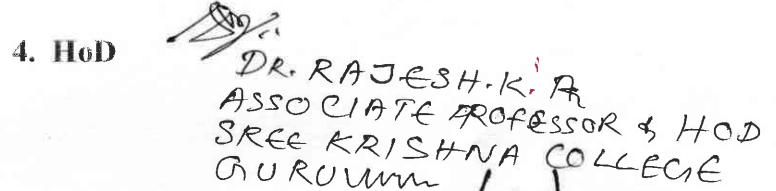 4. HoD
DR. RAJESH.K.
ASSOCIATE PROFESSOR & HOD
SREE KRISHNA COLLEGE